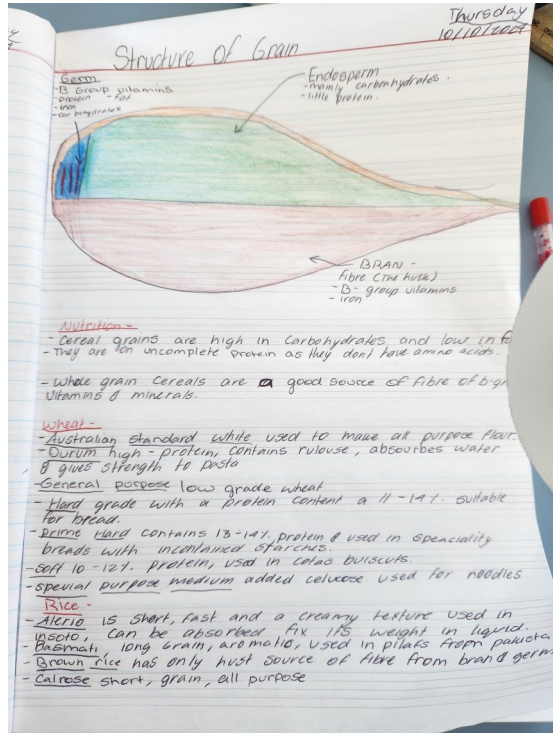 Thursday
10/10/20
Structure of Grain
Germ
-B Group vitamins
-protein -fat
-iron
-carbohydrates
Endosperm
-mainly carbonhydrates.
-little protein.
BRAN -
fibre (the husk)
-B- group vitamins
-iron
Nutrition -
- Cereal grains are high in carbohydrates and low in f
- They are an uncomplete protein as they dont have amino acids.
- Whole grain cereals are a good source of fibre of
vitamins & minerals.
Wheat -
-Australian standard white used to make all purpose flour.
-Durum high - protein, contains , absourbes water
& gives strength to pasta
-General purpose low grade wheat
-Hard grade with a protein content a 11-14% suitable
for bread.
-Prime Hard contains 13-14% protein & used in speaciality
breads with starches.
-soft 10-12% protein, used in buiscuts.
-special purpose medium added used for noodles
Rice -
- is short, fast and a creamy texture used in
can be absorbed its weight in liquid.
-Basmati, long grain, aromatic, used in pilafs from
-Brown rice has only husk source of fibre from bran & germ
-Calrose short, grain, all purpose